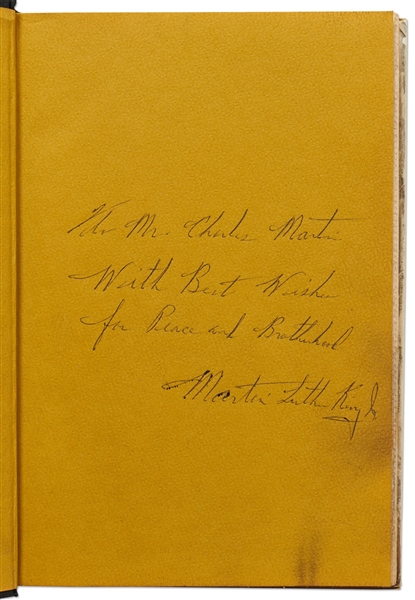 To Mr. Charles Martin
With Best Wishes
for Peace and Brotherhood
Martin Luther King Jr.